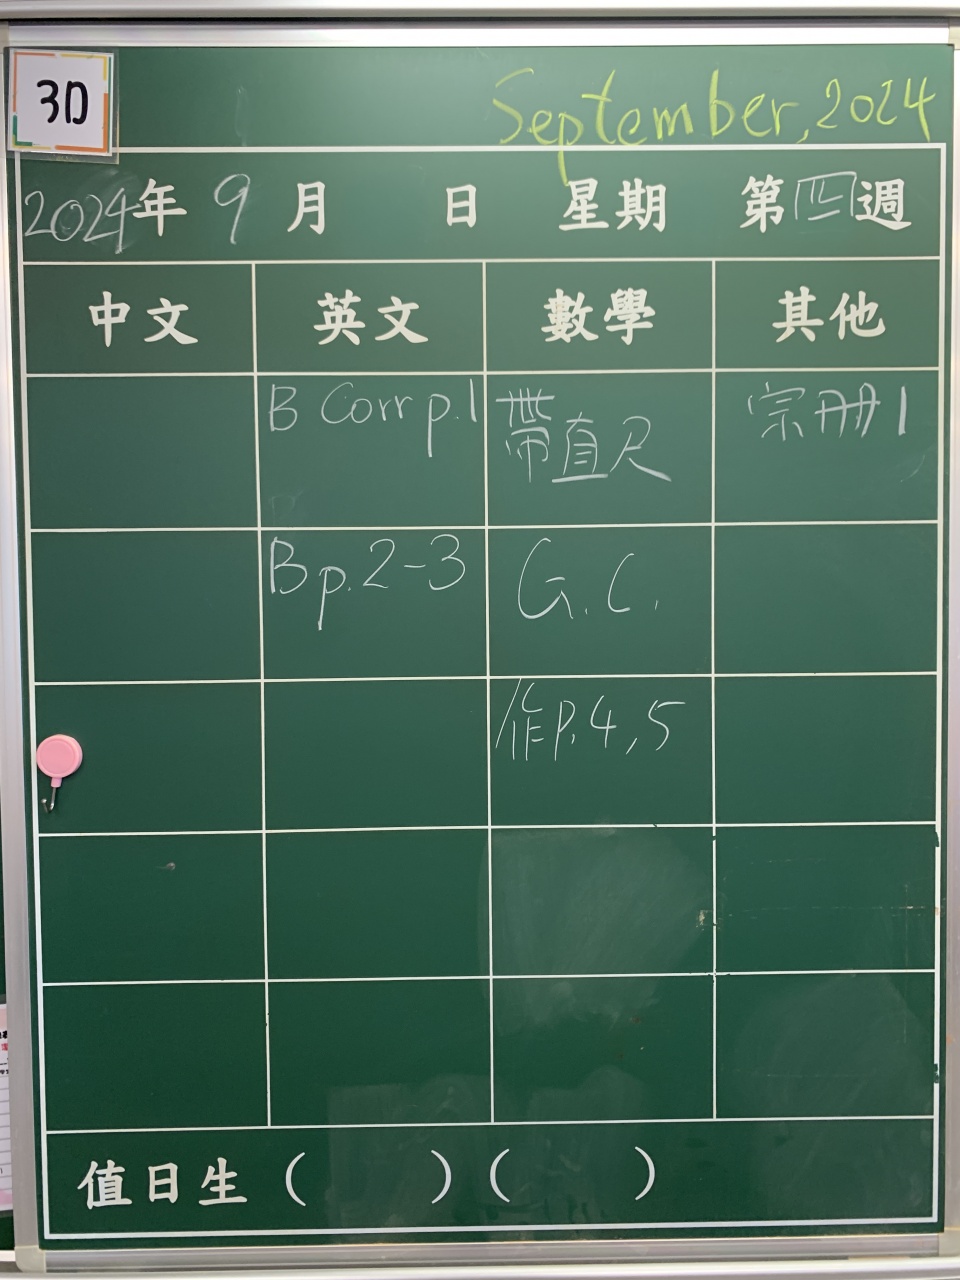 3D
September, 2024
2024年 9月 日 星期 第四週
中文 英文 數學 其他
B Corr p.1 帶直尺 宗冊1
B p.2-3 G.C.
作p.4,5
值日生 ( ) ( )